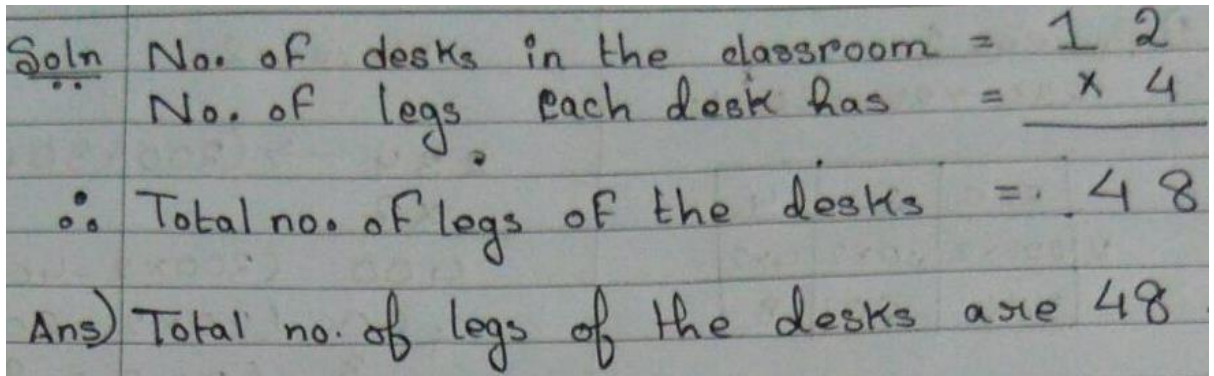 Soln No. of desks in the classroom = 12
No. of legs each desk has = × 4
∴ Total no. of legs of the desks = 48
Ans) Total no. of legs of the desks are 48.